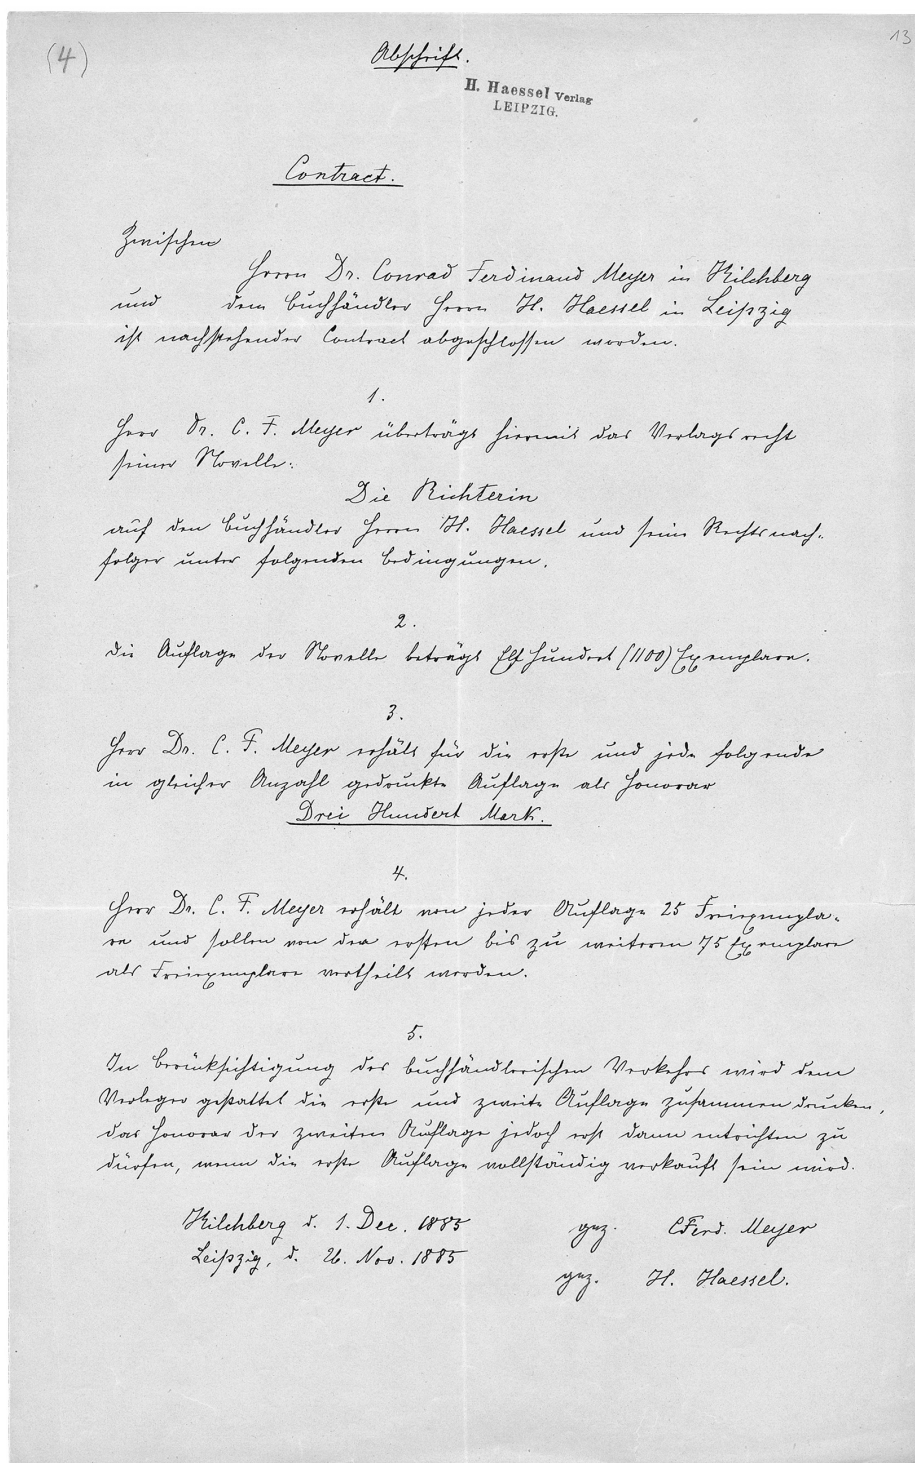 (4)
13
Abschrift.
H. Haessel Verlag
LEIPZIG.
Contract.
Zwischen
Herrn Dr. Conrad Ferdinand Meyer in Kilchberg
und dem Buchhändler Herrn H. Haessel in Leipzig
ist nachstehender Contract abgeschlossen worden.
1.
Herr Dr. C. F. Meyer überträgt hiermit das Verlagsrecht
seiner Novelle:
Die Richterin
auf den Buchhändler Herrn H. Haessel und seine Rechtsnach-
folger unter folgenden Bedingungen.
2.
Die Auflage der Novelle beträgt Elf Hundert (1100) Exemplare.
3.
Herr Dr. C. F. Meyer erhält für die erste und jede folgende
in gleicher Anzahl gedruckte Auflage als Honorar
Drei Hundert Mark.
4.
Herr Dr. C. F. Meyer erhält von jeder Auflage 25 Freiexempla-
re und sollen von der ersten bis zu weiteren 75 Exemplare
als Freiexemplare vertheilt werden.
5.
In Berücksichtigung des buchhändlerischen Verkehrs wird dem
Verleger gestattet die erste und zweite Auflage zusammen drucken,
das Honorar der zweiten Auflage jedoch erst dann entrichten zu
dürfen, wenn die erste Auflage vollständig verkauft sein wird.
Kilchberg d. 1. Dec. 1885 gez. CFerd. Meyer
Leipzig, d. 26. Nov. 1885
gez. H. Haessel.